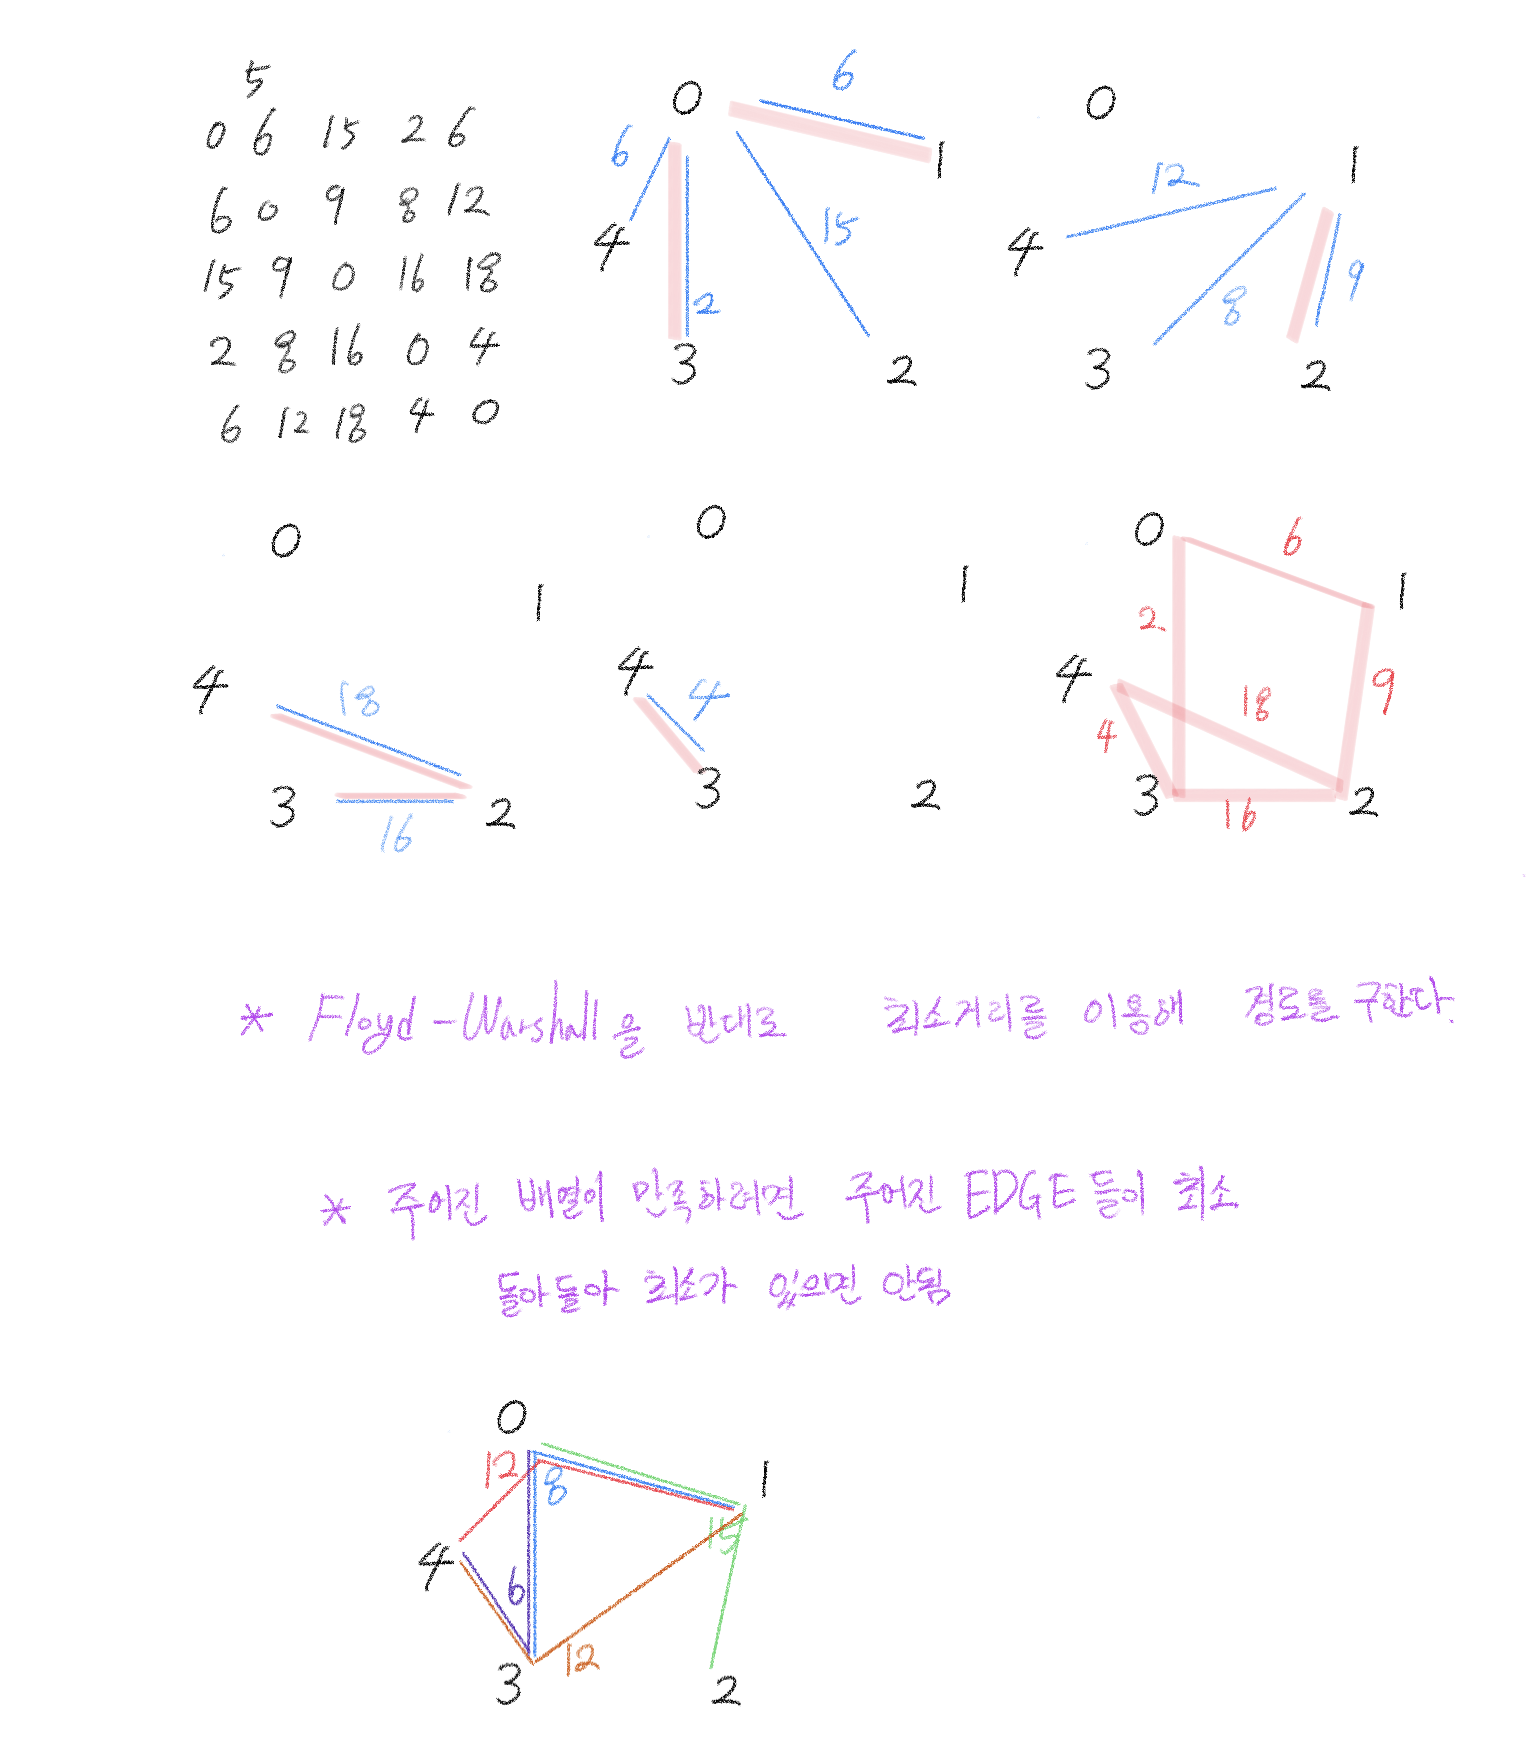 5
0 6 15 2 6
6 0 9 8 12
15 9 0 16 18
2 8 16 0 4
6 12 18 4 0
0
6
1
6
4
15
2
3
2
0
1
12
4
8
9
3
2
0
1
4
18
3
2
16
0
1
4
4
3
2
0
6
1
2
4
9
18
4
3
2
16
* Floyd-Warshall을 반대로 최소거리를 이용해 경로를 구한다.
* 주어진 배열이 만족하려면 주어진 EDGE들이 최소
돌아돌아 최소가 있으면 안됨
0
12
8
1
15
4
6
12
3
2